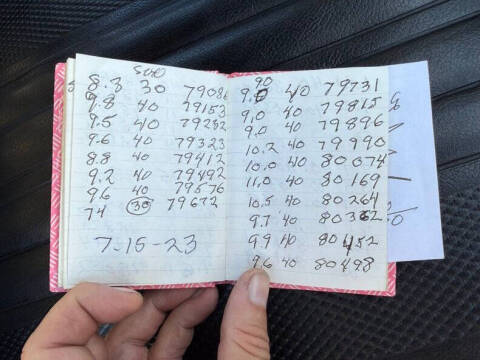 500
8.3 30 79086
9.8 40 79153
9.5 40 79232
9.6 40 79323
8.8 40 79412
9.2 40 79492
9.6 40 79576
74 30 79672
7-15-23
90
9.0 40 79731
9.0 40 79815
9.0 40 79896
10.2 40 79990
10.0 40 80074
11.0 40 80169
10.5 40 80264
9.7 40 80352
9.9 40 80452
9.6 40 80498